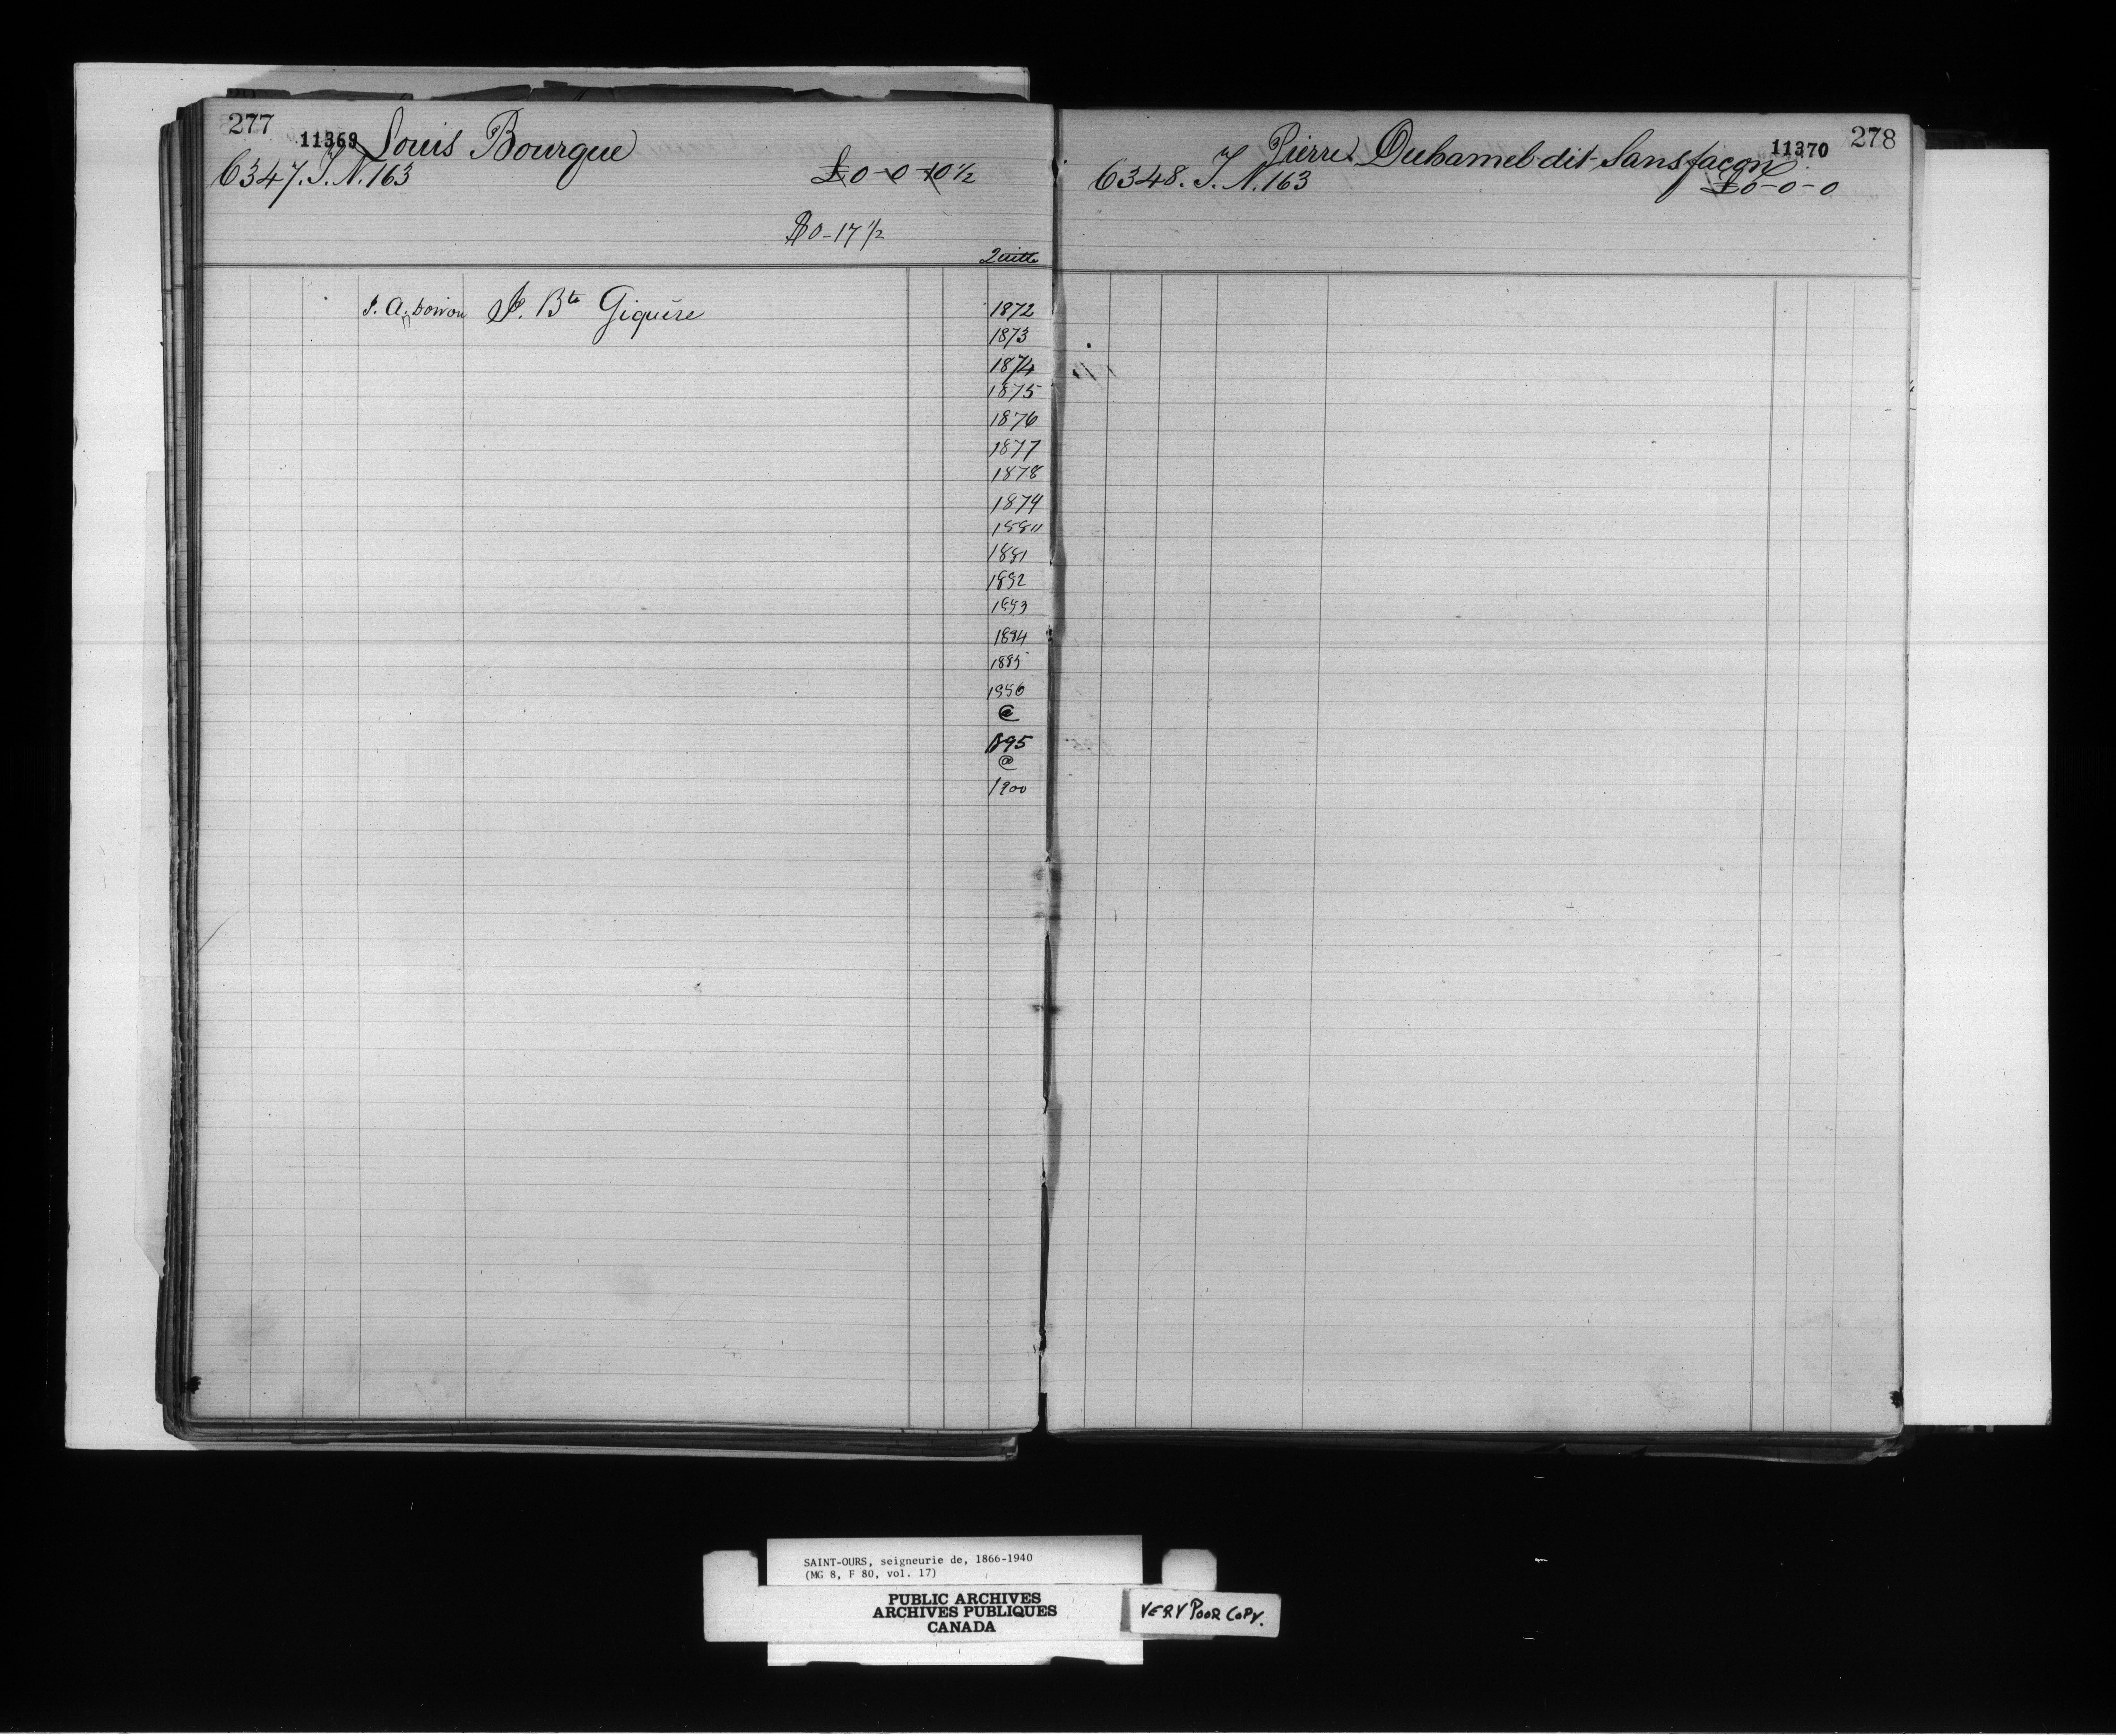 277
11369 Louis Bourque
6347. T. N. 163 £0-0-10½
$0-17½
Quitte
J. Bte Giguère
1872
1873
1874
1875
1876
1877
1878
1879
1880
1881
1882
1883
1884
1885
1886
@
1895
@
1900
Pierre Duhamel dit Sansfaçon 11370 278
6348. T. N. 163 £0-0-0
SAINT-OURS, seigneurie de, 1866-1940
(MG 8, F 80, vol. 17)
PUBLIC ARCHIVES
ARCHIVES PUBLIQUES
CANADA
VERY POOR COPY.